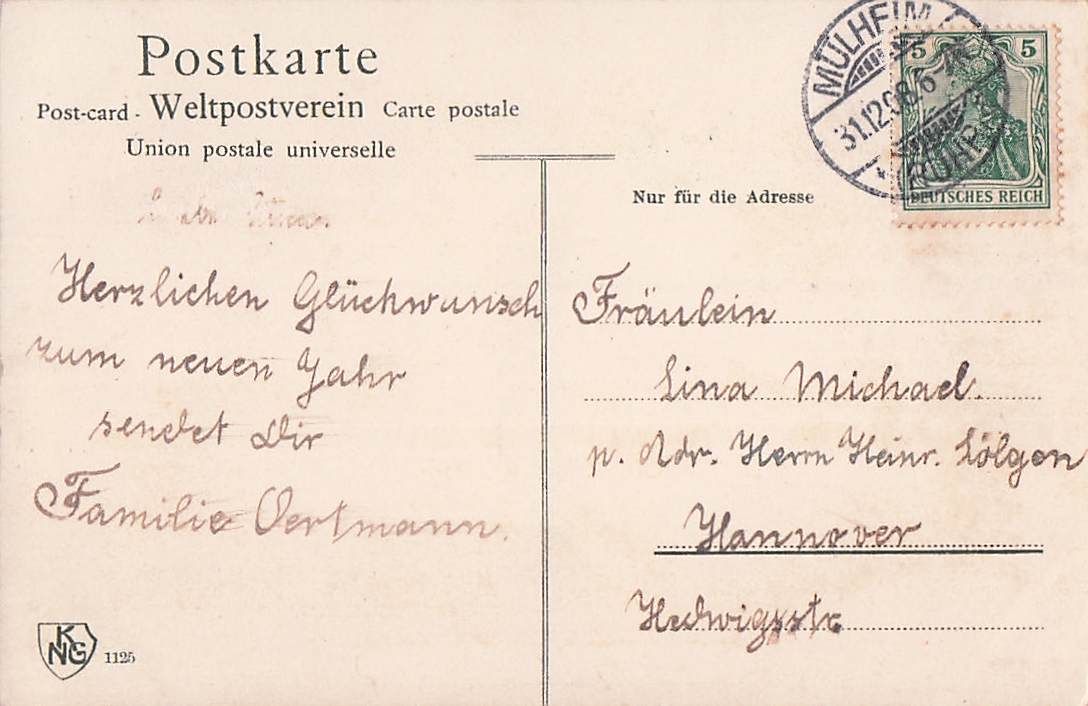 Postkarte
Post-card - Weltpostverein Carte postale
Union postale universelle
Nur für die Adresse
MÜLHEIM
31.12.08.6-7
(RUHR)
5 5
DEUTSCHES REICH
Herzlichen Glückwunsch
zum neuen Jahr
sendet Dir
Familie Oertmann.
Fräulein
Lina Michael.
p. Adr. Herrn Heinr. Sölgen
Hannover
Hedwigsstr.
KNG
1125